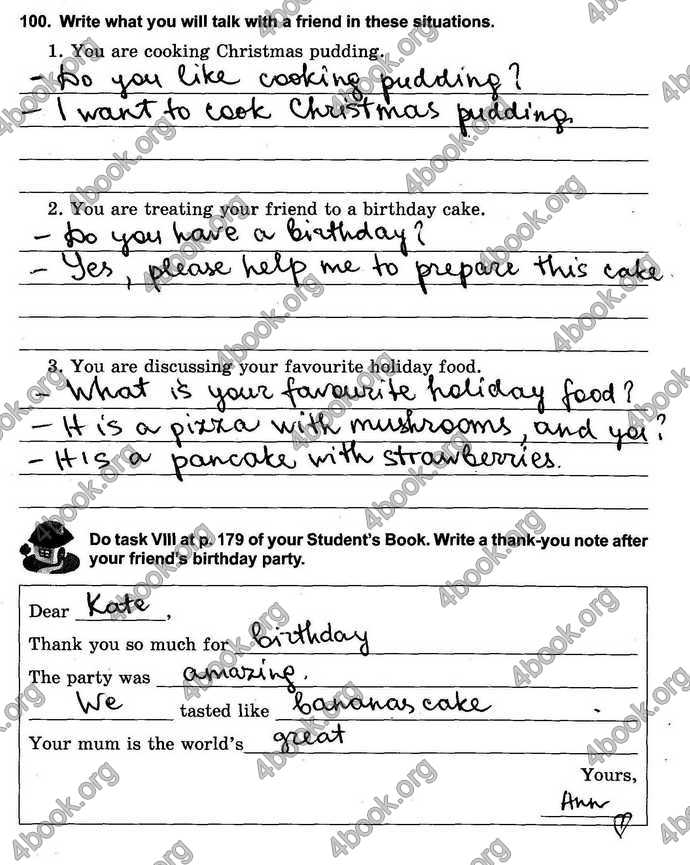 100. Write what you will talk with a friend in these situations.
1. You are cooking Christmas pudding.
- Do you like cooking pudding?
- I want to cook Christmas pudding.
2. You are treating your friend to a birthday cake.
- Do you have a birthday?
- Yes, please help me to prepare this cake.
3. You are discussing your favourite holiday food.
- What is your favourite holiday food?
- It is a pizza with mushrooms, and you?
- It is a pancake with strawberries.
Do task VIII at p. 179 of your Student's Book. Write a thank-you note after
your friend's birthday party.
Dear Kate,
Thank you so much for birthday
The party was amazing.
We tasted like bananas cake.
Your mum is the world's great
Yours,
Ann
4book.org